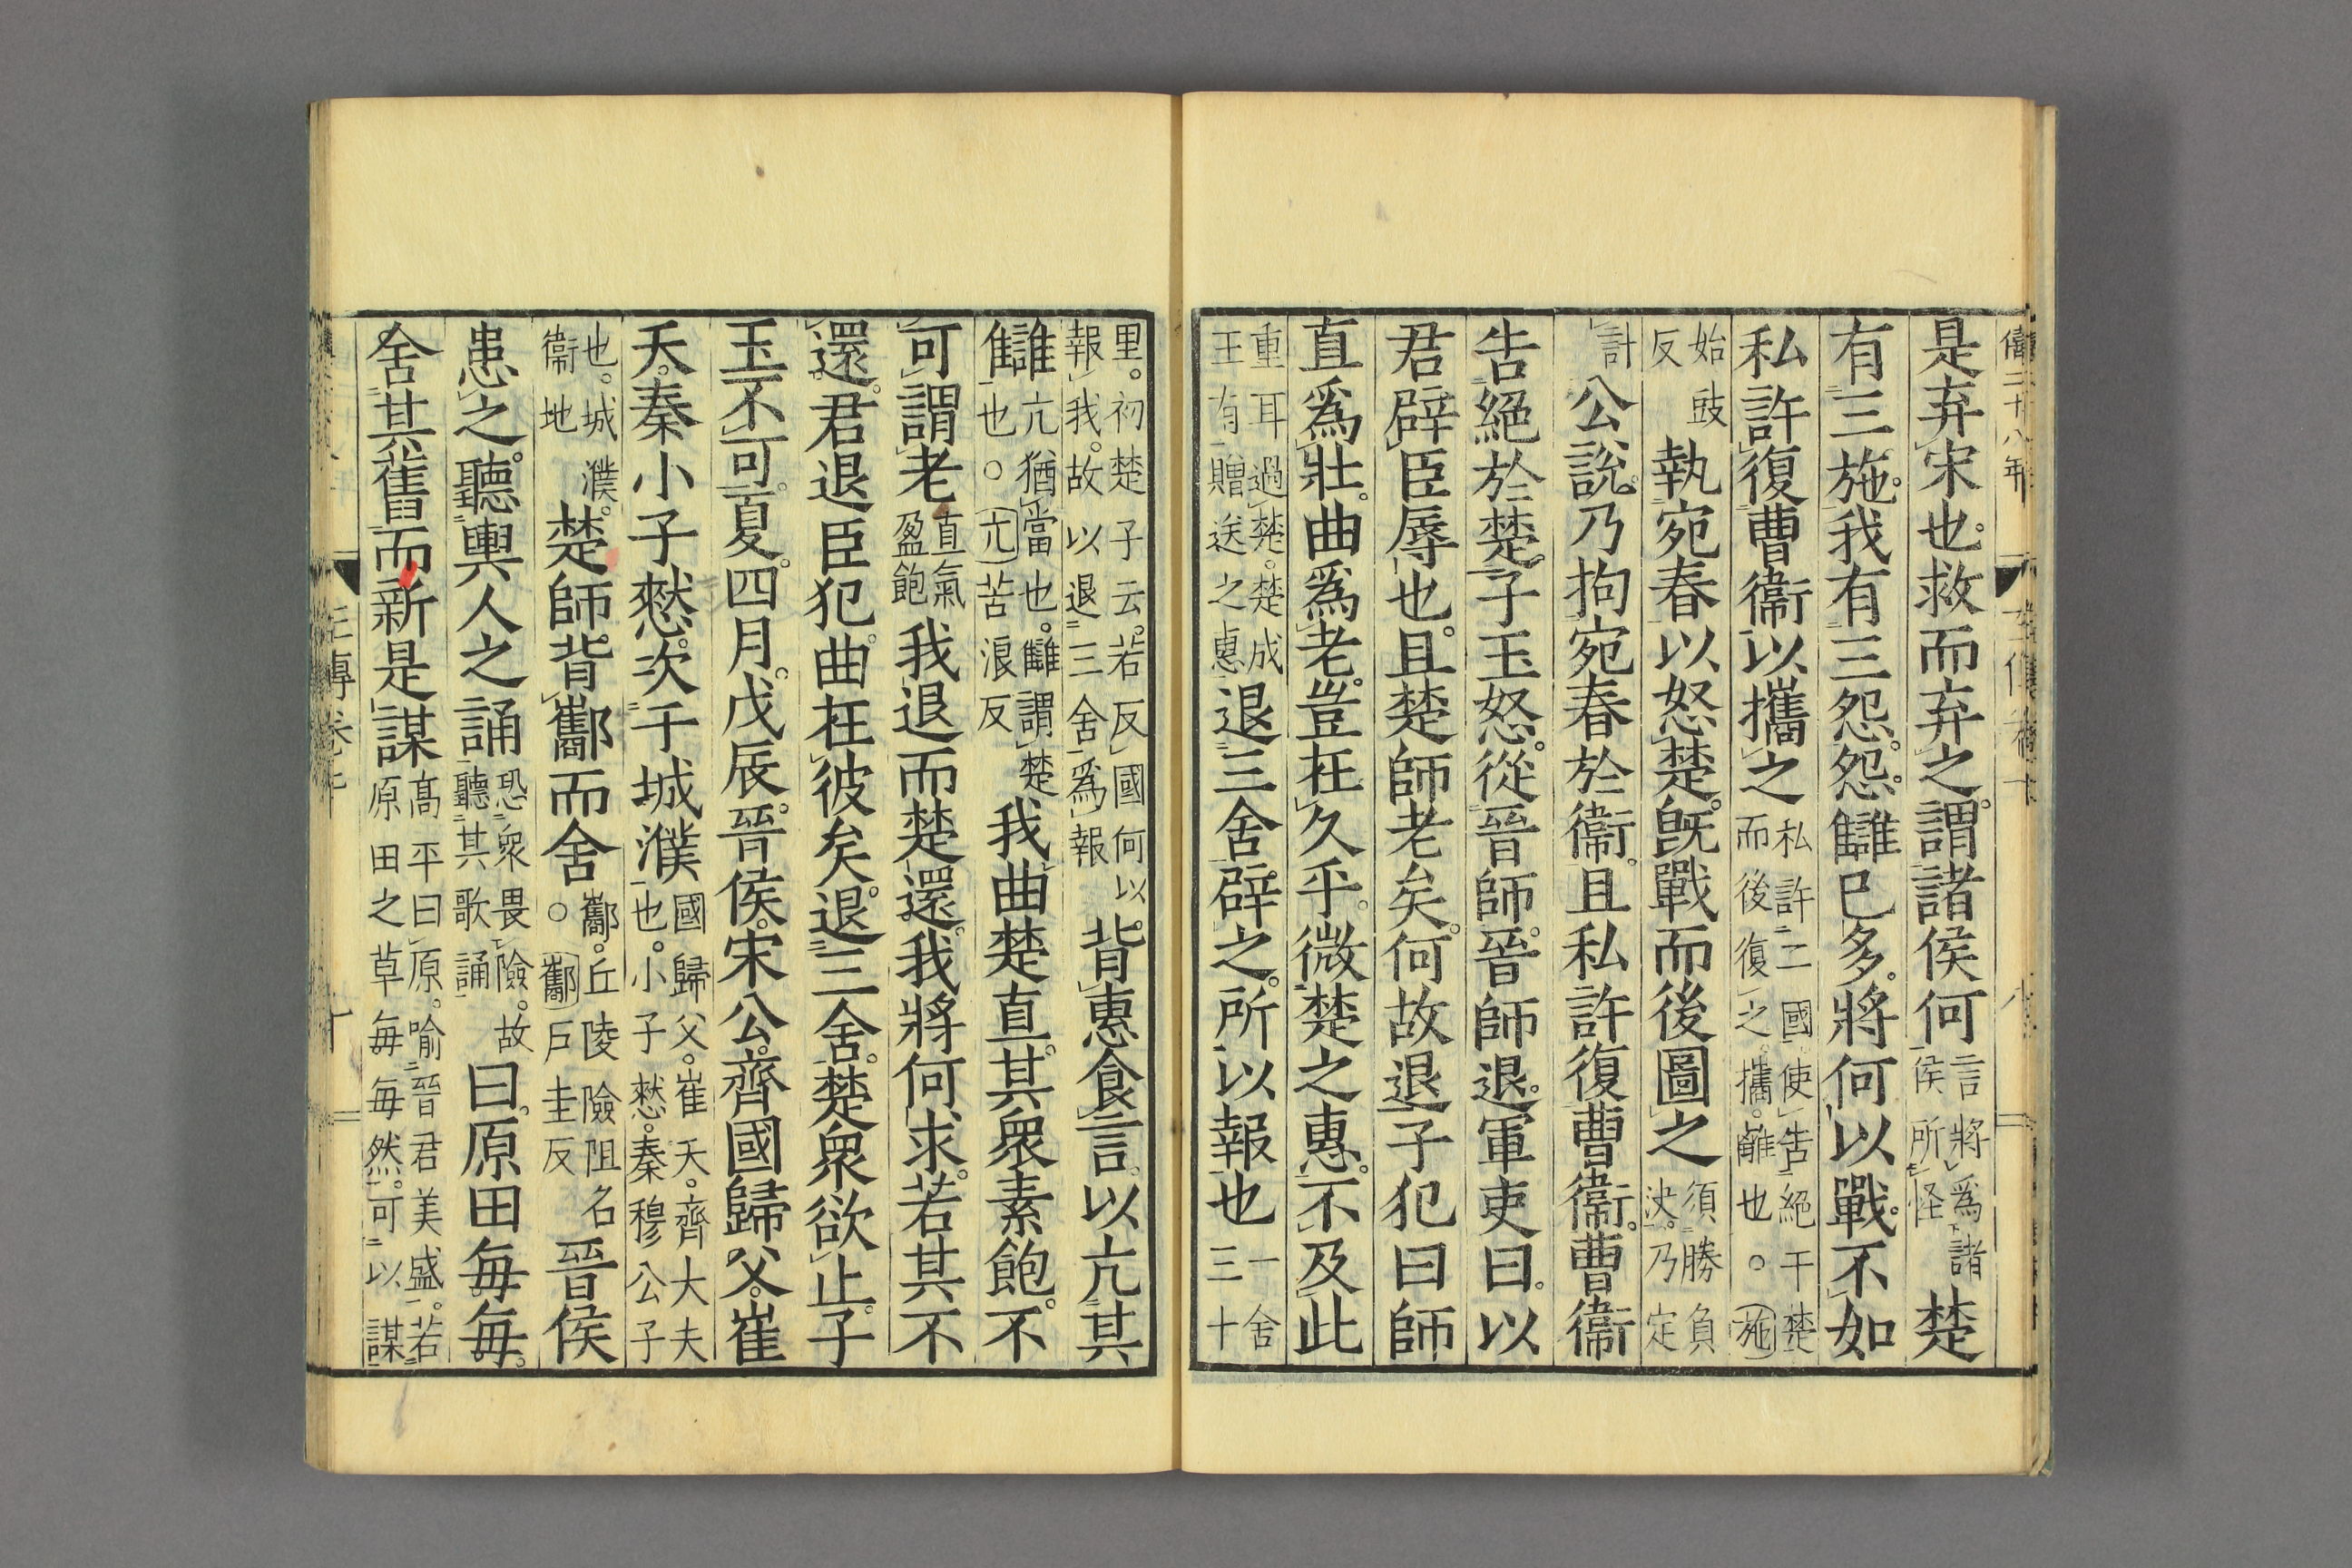 僖二十八年
是弃宋也。救而弃之。謂諸侯何言將爲諸侯所怪楚
有三施。我有三怨。怨讎已多。將何以戰。不如
私許復曹衞以攜之私許二國使告絕于楚而後復之。攜。離也。○施
始豉反執宛春以怒楚。旣戰而後圖之須勝負決。乃定
計公說。乃拘宛春於衞。且私許復曹衞。曹衞
告絕於楚。子玉怒。從晉師。晉師退。軍吏曰。以
君辟臣辱也。且楚師老矣。何故退。子犯曰師
直爲壯。曲爲老。豈在久乎。微楚之惠。不及此
重耳過楚。楚成王有贈送之惠退三舍辟之。所以報也一舍三十
里。初楚子云。若反國何以報我。故以退三舍爲報背惠食言。以亢其
讎亢猶當也。讎謂楚也。○亢苦浪反我曲楚直。其衆素飽。不
可謂老直氣盈飽我退而楚還。我將何求。若其不
還。君退臣犯。曲在彼矣。退三舍。楚衆欲止。子
玉不可。夏。四月。戊辰。晉侯。宋公。齊國歸父。崔
夭。秦小子憖。次于城濮國歸父。崔夭。齊大夫也。小子憖。秦穆公子
也。城濮。衞地楚師背酅而舍酅。丘陵險阻名。○酅戶圭反晉侯
患之。聽輿人之誦恐衆畏險。故聽其歌誦曰。原田每每。
舍其舊而新是謀高平曰原。喻晉君美盛。若原田之草每每然。可以謀
左傳卷七
十